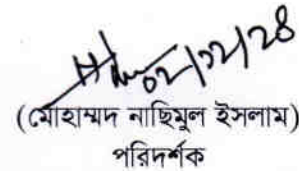 ০২/১২/২৪
(মোহাম্মদ নাছিমুল ইসলাম)
পরিদর্শক